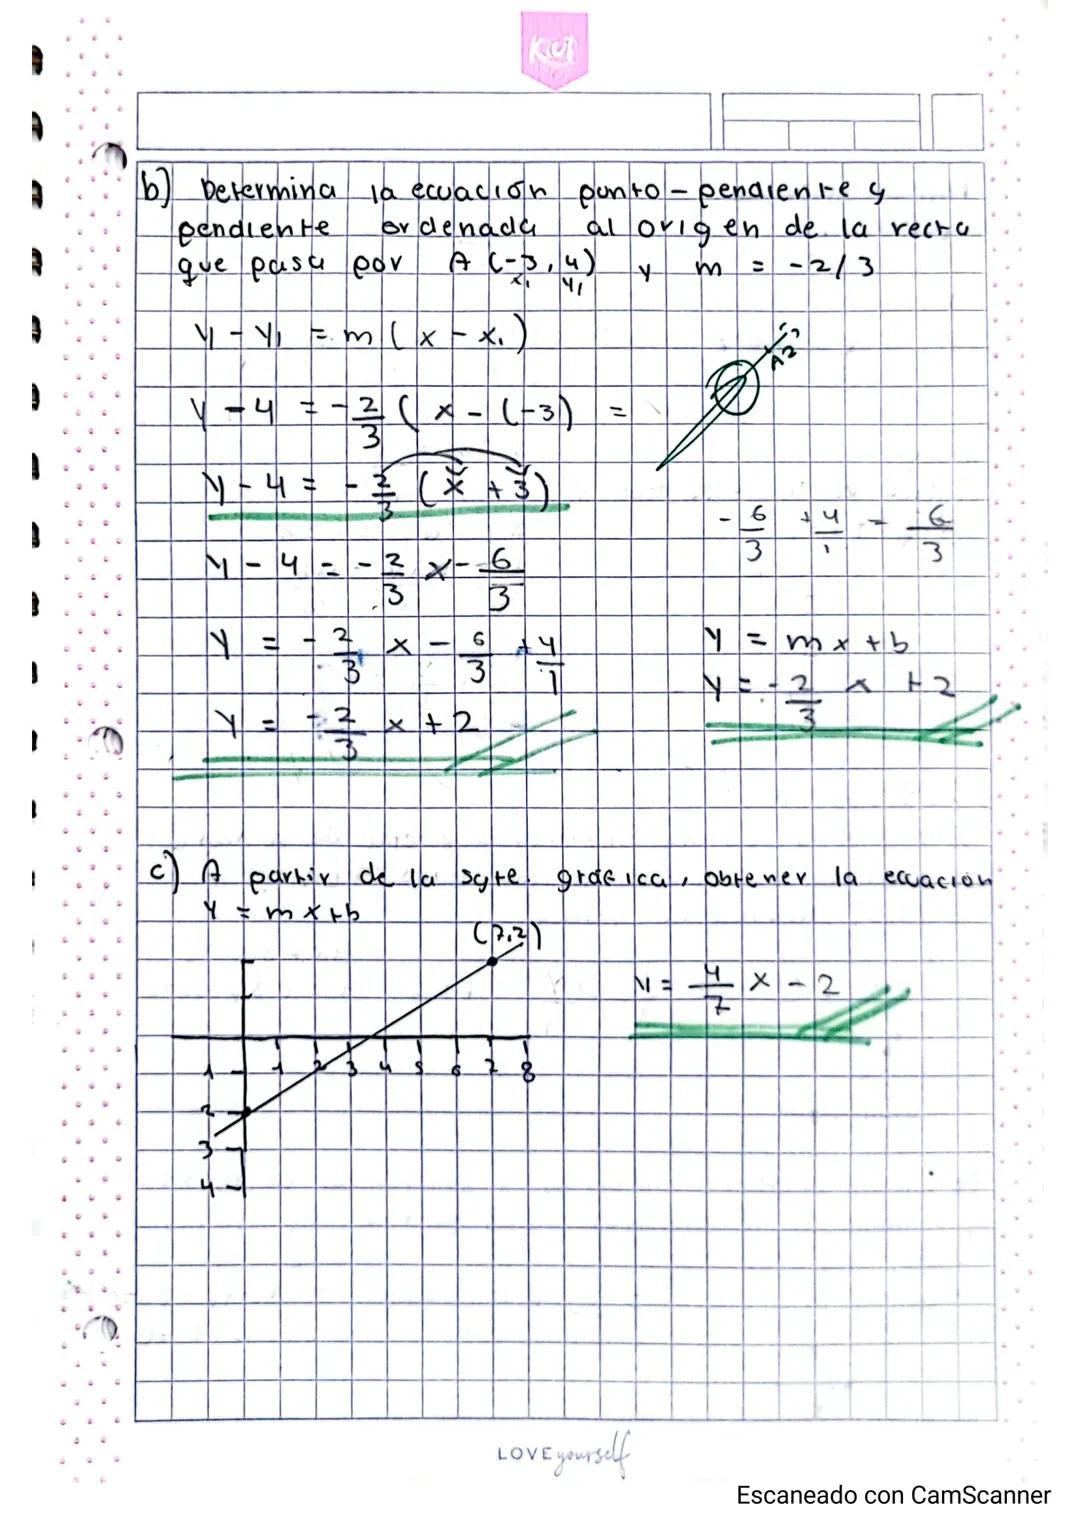 KUT
b) Determina la ecuación punto-pendiente y
pendiente ordenada al origen de la recta
que pasa por A (-3, 4) y m = -2/3
x₁ y₁
y - y₁ = m ( x - x₁ )
y - 4 = - 2/3 ( x - (-3) =
y - 4 = - 2/3 ( x + 3)
- 6/3 + 4/1 = 6/3
y - 4 = - 2/3 x - 6/3
y = - 2/3 x - 6/3 + 4/1
y = mx + b
y = - 2/3 x + 2
y = - 2/3 x + 2
c) A partir de la sgte. gráfica, obtener la ecuación
y = mx+b
(7,2)
y = 4/7 x - 2
1 2 3 4 5 6 7 8
1
2
3
4
LOVE yourself
Escaneado con CamScanner